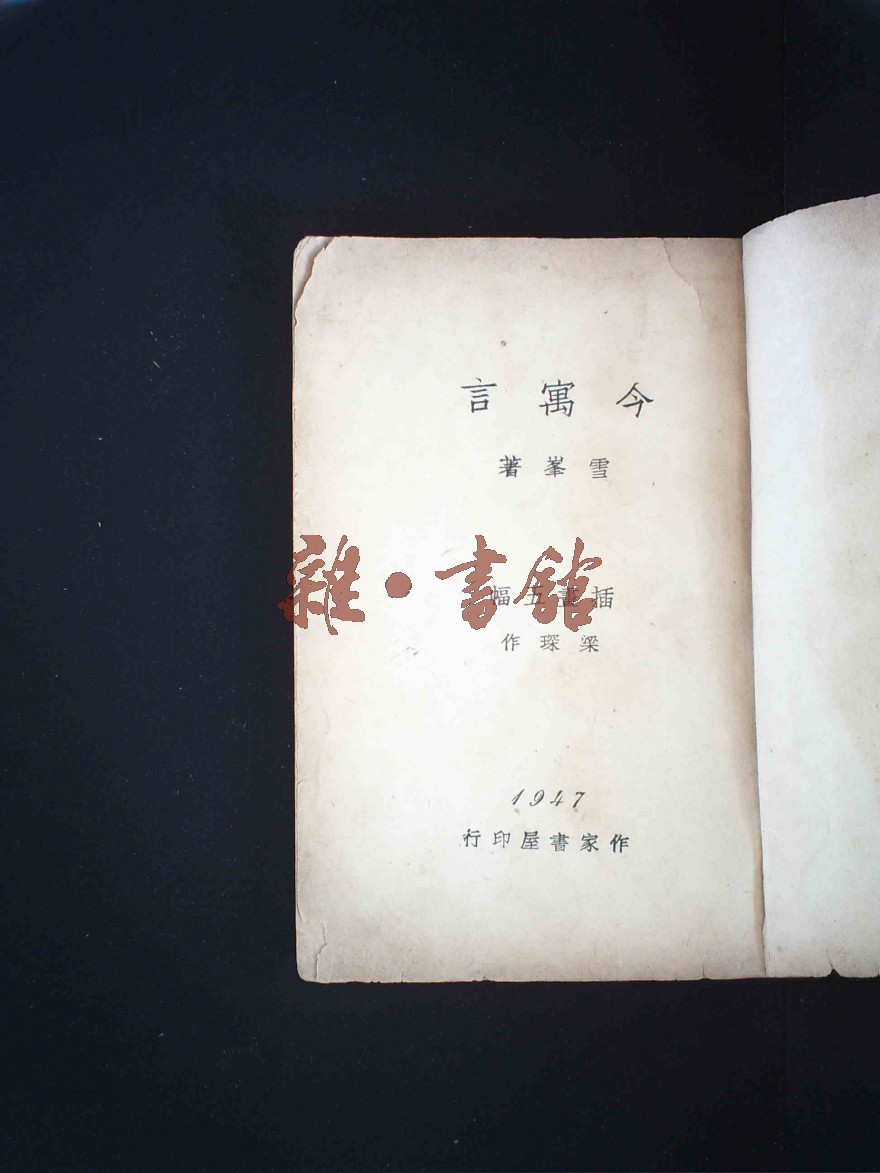 今寓言
雪峯著
插畫五幅
梁琛作
1947
作家書屋印行
雜·書館